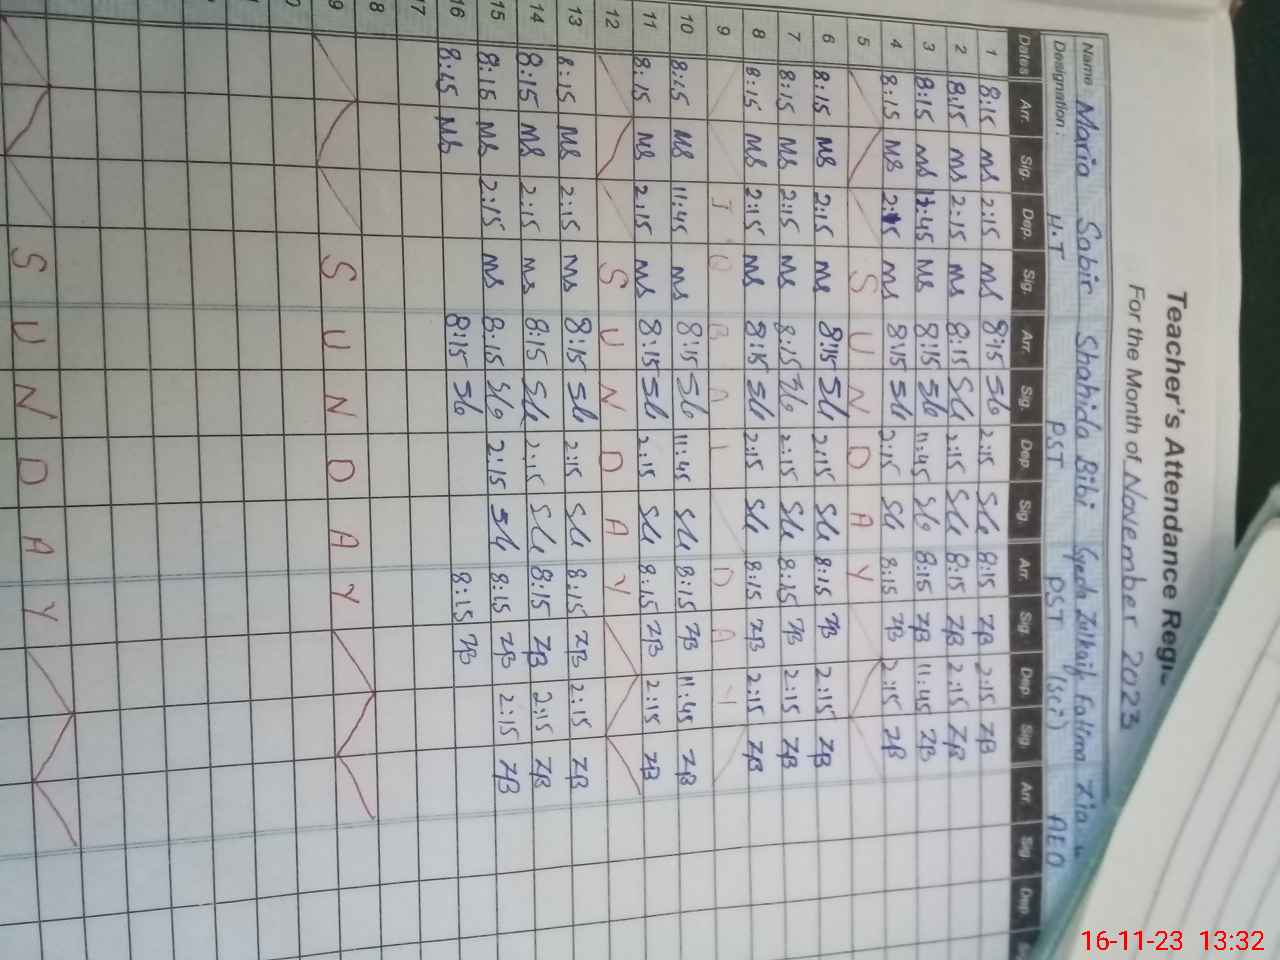 Teacher's Attendance Regi
For the Month of November 2023
Name: Maria Sabir Shahida Bibi Syeda Zulkaif Fatima Zia
Designation: H.T PST PST (sci) AEO
Dates Arr. Sig. Dep. Sig. Arr. Sig. Dep. Sig. Arr. Sig. Dep. Sig. Arr. Sig. Dep.
1 8:15 MS 2:15 MS 8:15 Sb 2:15 Sb 8:15 ZB 2:15 ZB
2 8:15 MS 2:15 MS 8:15 Sb 2:15 Sb 8:15 ZB 2:15 ZB
3 8:15 MS 11:45 MS 8:15 Sb 11:45 Sb 8:15 ZB 11:45 ZB
4 8:15 MS 2:15 MS 8:15 Sb 2:15 Sb 8:15 ZB 2:15 ZB
5 S U N D A Y
6 8:15 MS 2:15 MS 8:15 Sb 2:15 Sb 8:15 ZB 2:15 ZB
7 8:15 MS 2:15 MS 8:15 Sb 2:15 Sb 8:15 ZB 2:15 ZB
8 8:15 MS 2:15 MS 8:15 Sb 2:15 Sb 8:15 ZB 2:15 ZB
9 I Q B A L D A Y
10 8:15 MS 11:45 MS 8:15 Sb 11:45 Sb 8:15 ZB 11:45 ZB
11 8:15 MS 2:15 MS 8:15 Sb 2:15 Sb 8:15 ZB 2:15 ZB
12 S U N D A Y
13 8:15 MS 2:15 MS 8:15 Sb 2:15 Sb 8:15 ZB 2:15 ZB
14 8:15 MS 2:15 MS 8:15 Sb 2:15 Sb 8:15 ZB 2:15 ZB
15 8:15 MS 2:15 MS 8:15 Sb 2:15 Sb 8:15 ZB 2:15 ZB
16 8:15 MS 8:15 Sb 8:15 ZB
17
8
9 S U N D A Y
0
S U N D A Y
16-11-23 13:32